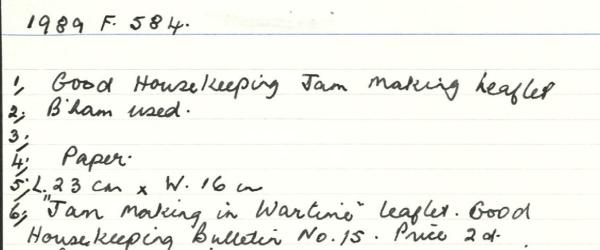 1989 F. 584.
1, Good Housekeeping Jam Making Leaflet
2, B'ham used.
3,
4, Paper.
5, L. 23 cm x W. 16 cm
6, "Jam Making in Wartime" leaflet. Good
Housekeeping Bulletin No. 15. Price 2d.